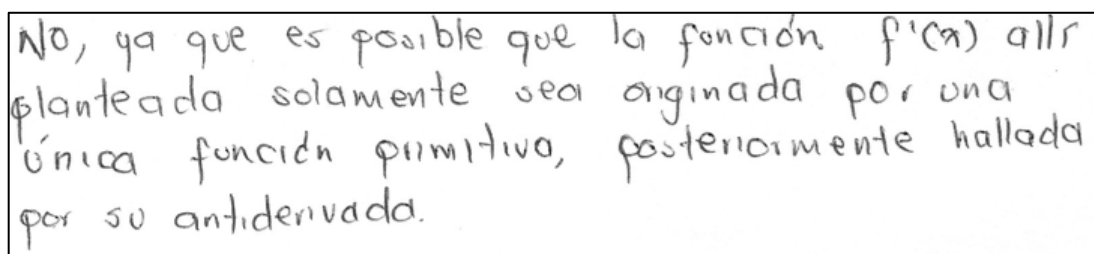 No, ya que es posible que la función f'(x) allí
planteada solamente sea originada por una
única función primitiva, posteriormente hallada
por su antiderivada.